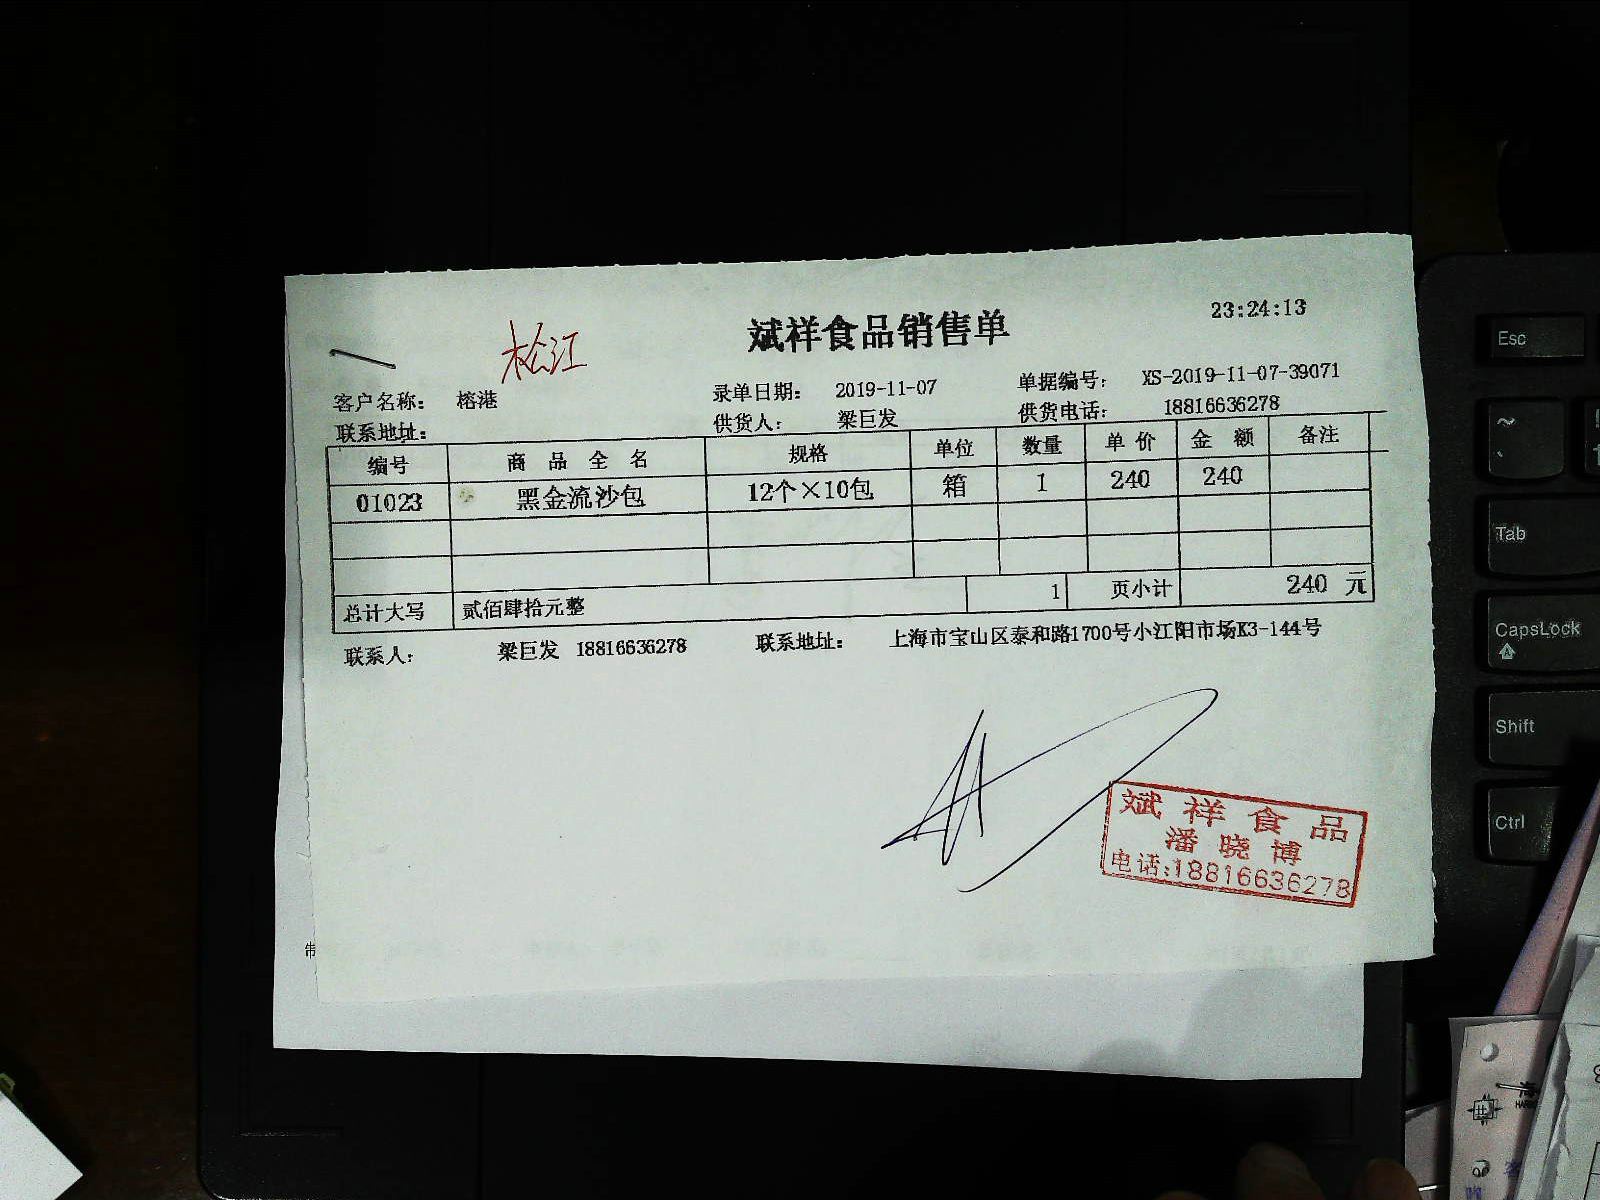 斌祥食品销售单
23:24:13
松江
客户名称： 榕港 录单日期： 2019-11-07 单据编号： XS-2019-11-07-39071
联系地址： 供货人： 梁巨发 供货电话： 18816636278
编号 商品全名 规格 单位 数量 单价 金额 备注
01023 黑金流沙包 12个×10包 箱 1 240 240
总计大写 贰佰肆拾元整 1 页小计 240 元
联系人： 梁巨发 18816636278 联系地址： 上海市宝山区泰和路1700号小江阳市场K3-144号
斌祥食品
潘晓博
电话:18816636278
Esc
Tab
CapsLock
Shift
Ctrl